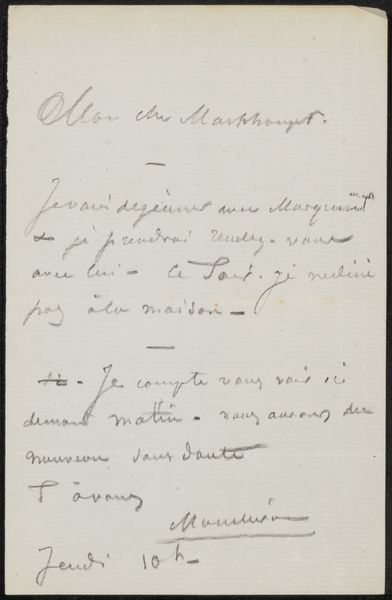 Mon cher
Je vais déjeuner avec
& je prendrai rendez-vous
avec lui - ce Soir. je ne dine
pas à la maison -
Je compte vous voir ici
demain matin - nous aurons du
nouveau sans doute
T à vous
Jeudi 10h -